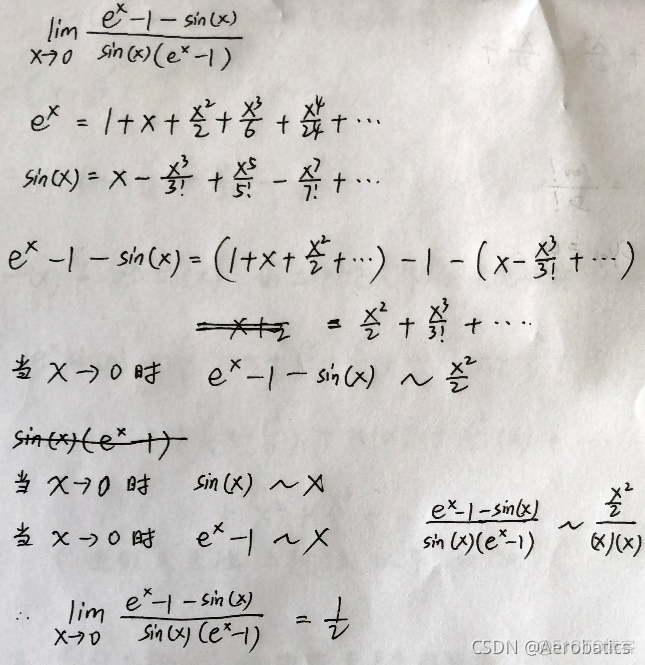 lim x→0 (e^x - 1 - sin(x)) / (sin(x)(e^x - 1))
e^x = 1 + x + x^2/2 + x^3/6 + x^4/24 + ···
sin(x) = x - x^3/3! + x^5/5! - x^7/7! + ···
e^x - 1 - sin(x) = (1 + x + x^2/2 + ···) - 1 - (x - x^3/3! + ···)
= x^2/2 + x^3/3! + ····
当 x→0 时 e^x - 1 - sin(x) ~ x^2/2
sin(x)(e^x - 1)
当 x→0 时 sin(x) ~ x
当 x→0 时 e^x - 1 ~ x
(e^x - 1 - sin(x)) / (sin(x)(e^x - 1)) ~ (x^2/2) / ((x)(x))
∴ lim x→0 (e^x - 1 - sin(x)) / (sin(x)(e^x - 1)) = 1/2
CSDN @Aerobatics